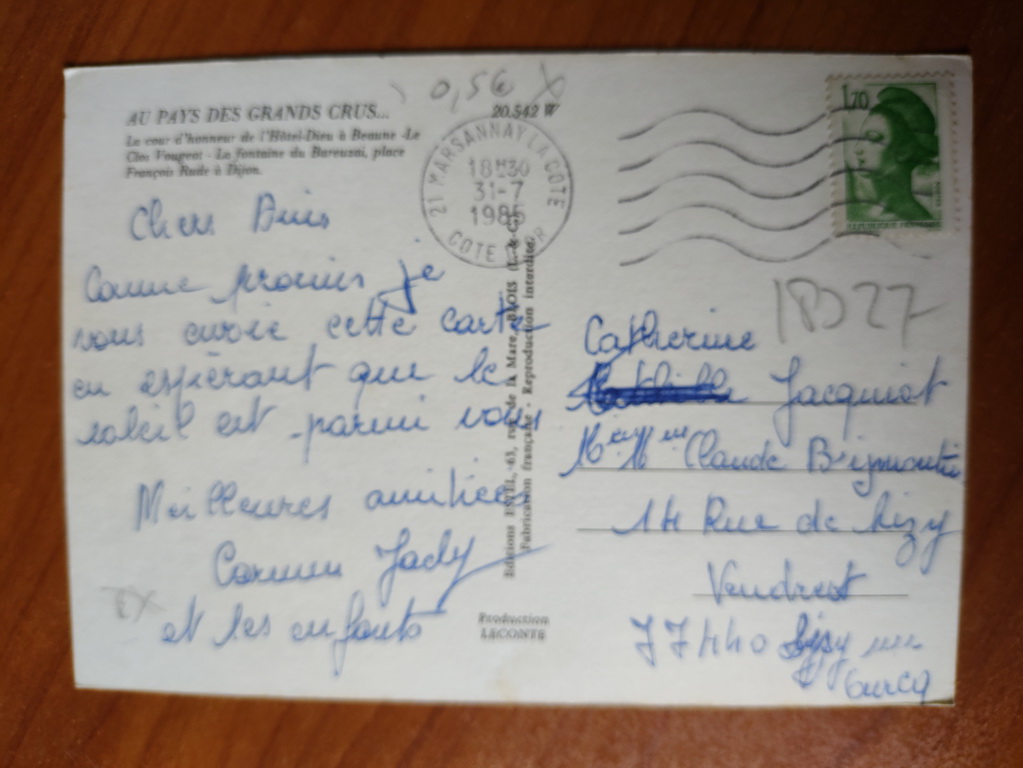 0,5€ X
AU PAYS DES GRANDS CRUS...
20.542 W
La cour d'honneur de l'Hôtel-Dieu à Beaune - Le
Clos Vougeot - La fontaine du Bareuzai, place
François Rude à Dijon.
21 MARSANNAY LA COTE
18H30
31-7
1985
COTE D'OR
1,70
REPUBLIQUE FRANCAISE
Chers Amis
Comme promis je
vous envoie cette carte
en espérant que le
soleil est parmi vous
Meilleures amitiées
Jacky
et les enfants
Editions ESTEL, 63, rue de la Mare, BLOIS (L.-&-C.)
Fabrication française - Reproduction interdite.
Production
LECONTE
18327
Catherine
Jacquiot
Mr et Mme Claude
14 Rue de Lizy
Vendrest
77440 Lizy sur
Ourcq